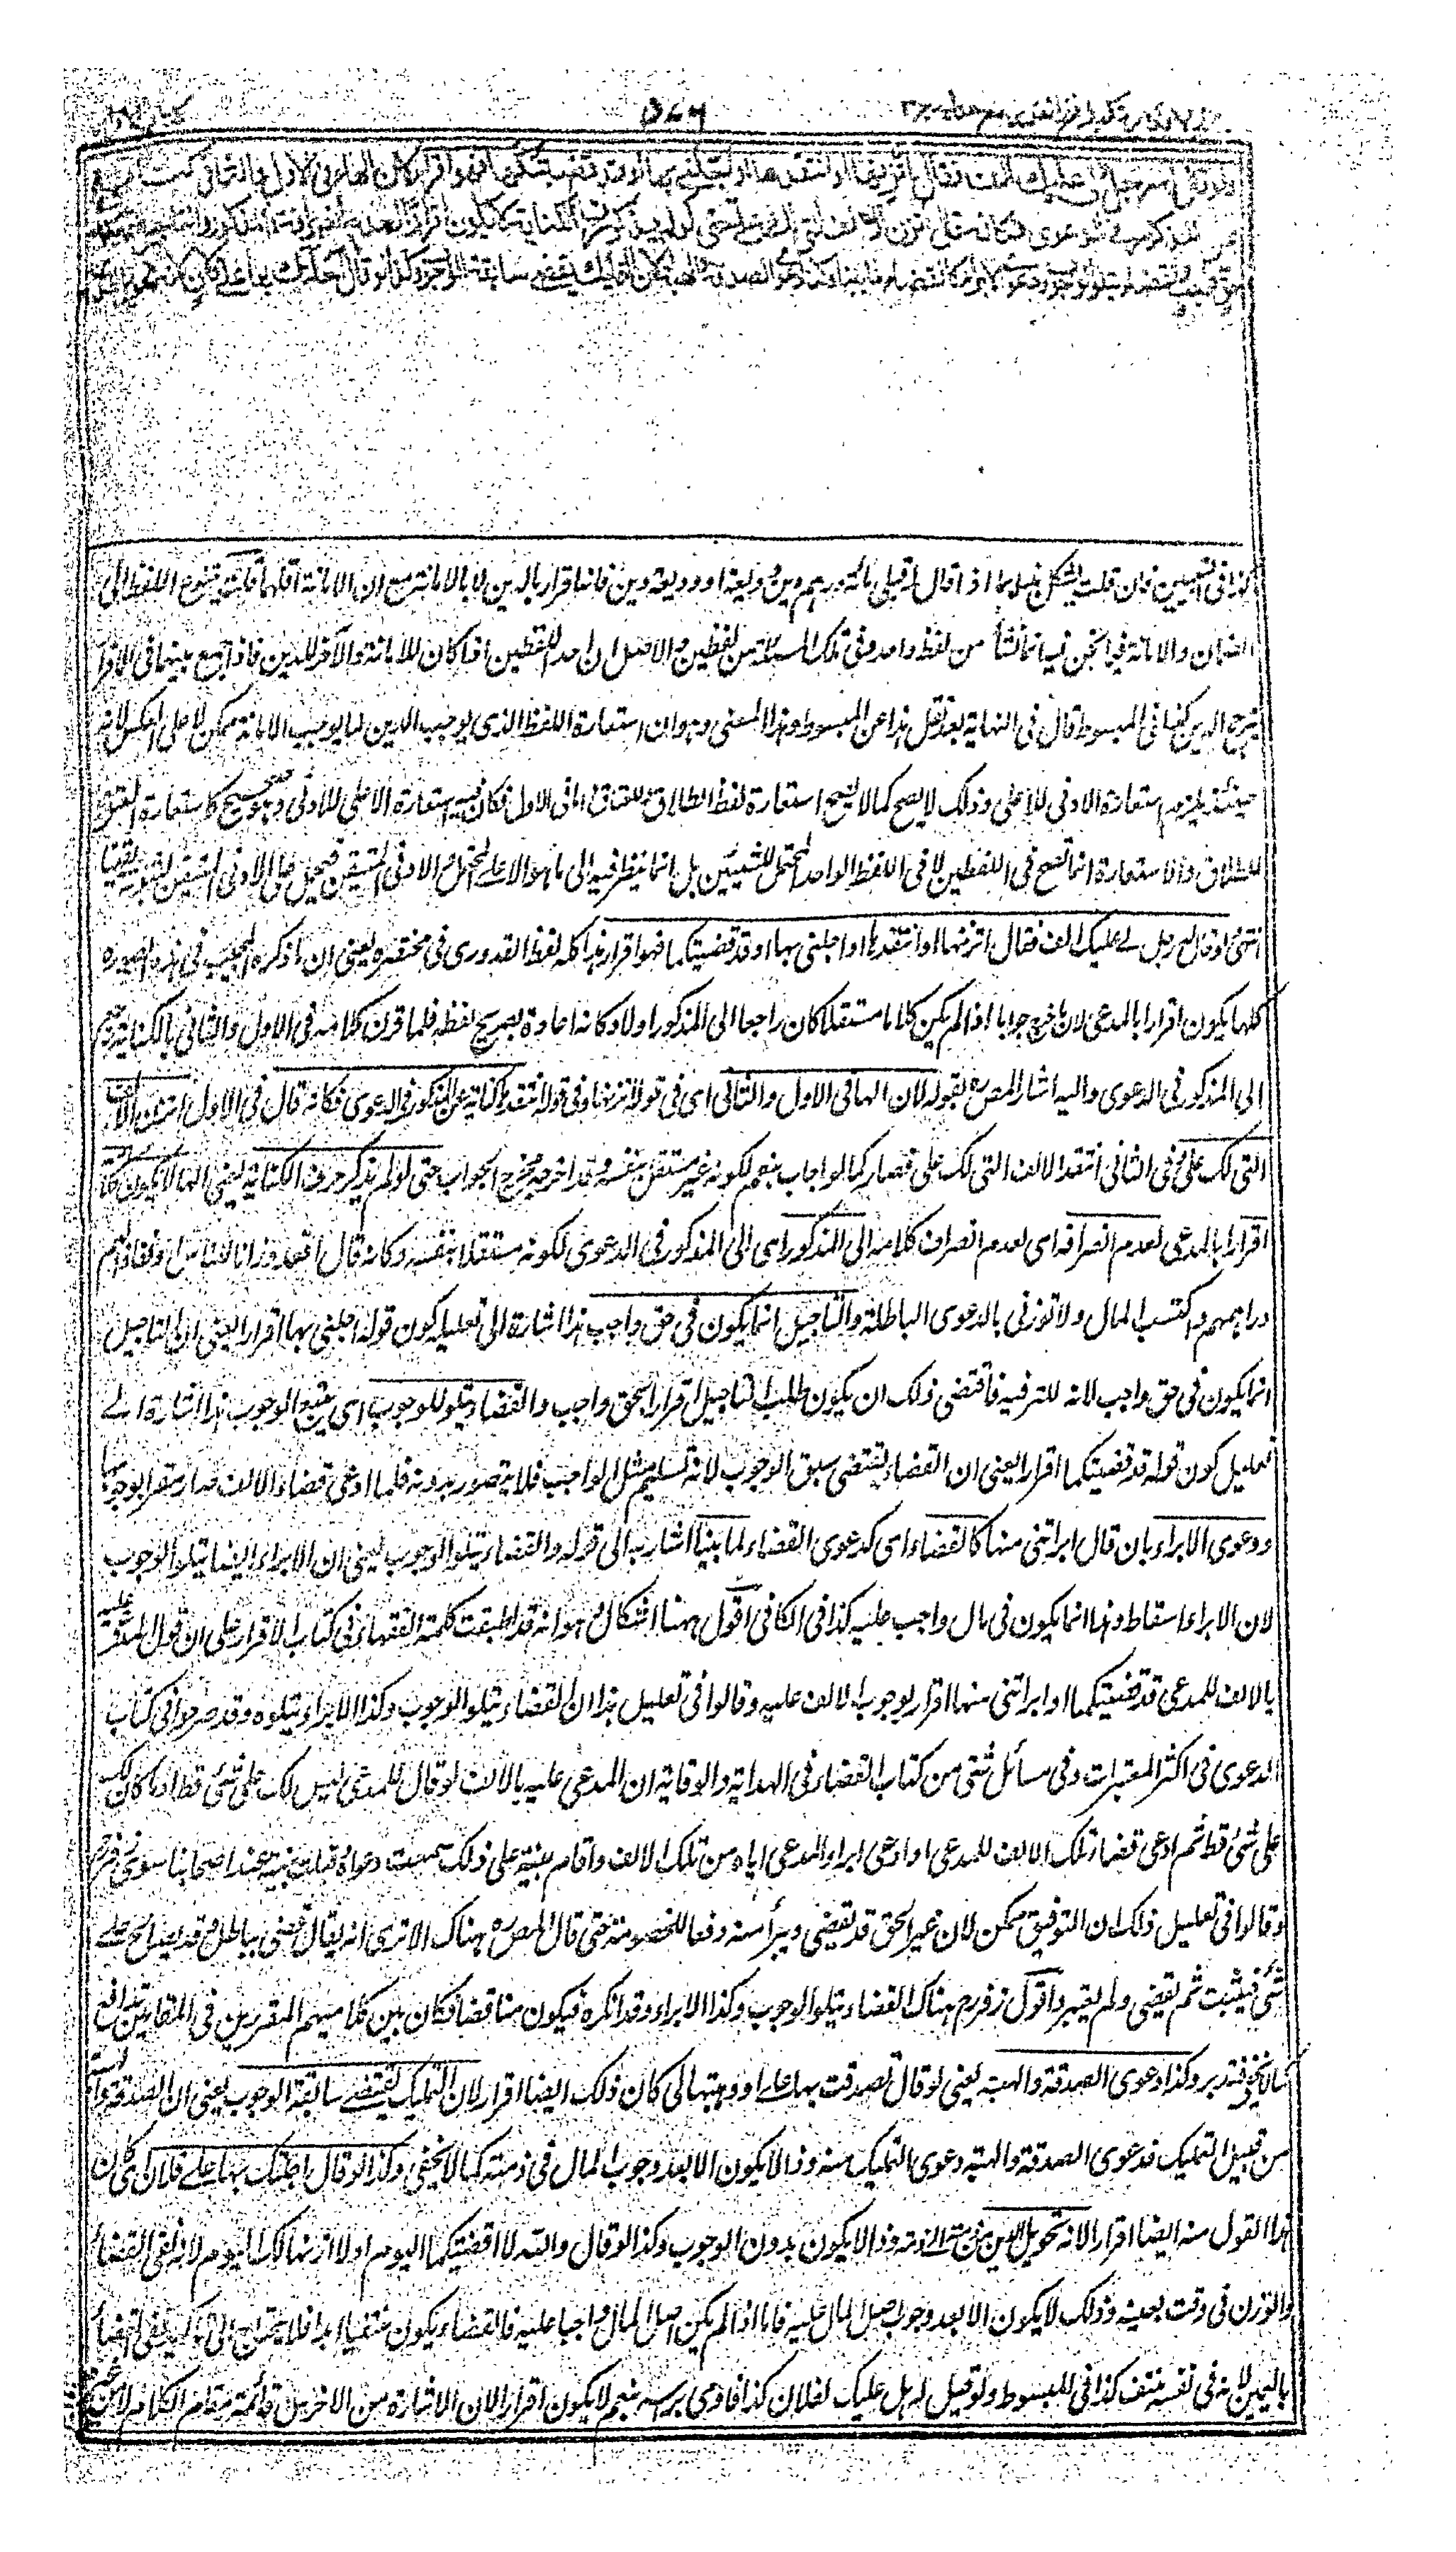 ٥٧٦
ولو قال له رجل لي عليك ألف فقال اتزنها أو انتقدها أو أجلني بها أو قد قضيتكها فهو إقرار لأن الهاء في الأول والثاني كناية عن
المذكور في الدعوى فكأنه قال اتزن الألف التي لك علي حتى لو لم يذكر حرف الكناية لا يكون إقرارا لعدم انصرافه إلى المذكور والتأجيل إنما يكون في
حق واجب والقضاء يتلو الوجوب ودعوى الإبراء كالقضاء لما بينا وكذا دعوى الصدقة والهبة لأن التمليك يقتضي سابقة الوجوب وكذا لو قال أحلتك بها على فلان لأنه تحويل الدين
كذا في التبيين فان قلت يشكل بما إذا قال قبلي مائة درهم دين وديعة أو وديعة دين فانها اقرار بالدين لا بالامانة مع ان الامانة اقلهما قلت تنوع اللفظ الى
الضمان والامانة فيما نحن فيه انما نشأ من لفظ واحد وفي تلك المسئلة من لفظين والاصل ان احد اللفظين اذا كان للامانة والآخر للدين فاذا جمع بينهما في الاقرار
يترجح الدين كذا في المبسوط قال في النهاية بعد نقل هذا عن المبسوط وهذا المعنى وهو ان استعارة اللفظ الذي يوجب الدين لما يوجب الامانة ممكن لا على العكس لانه
حينئذ يلزم استعارة الادنى للاعلى وذلك لا يصح كما لا يصح استعارة لفظ الطلاق للعتاق اما في الاول فكان فيه استعارة الاعلى للادنى وهو صحيح كاستعارة العتق
للطلاق والاستعارة انما تصح في اللفظين لا في اللفظ الواحد المحتمل للشيئين بل انما ينظر فيه الى ما هو الاعلى المحتمل والادنى المتيقن فيحمل على الادنى المتيقن لثبوته يقينا
انتهى ولو قال له رجل لي عليك الف فقال اتزنها او انتقدها او اجلني بها او قد قضيتكها فهو اقرار هذا كله لفظ القدوري في مختصره يعني ان ما ذكره المجيب في هذه الصورة
كلها يكون اقرارا بالمدعى لان ما خرج جوابا اذا لم يكن كلاما مستقلا كان راجعا الى المذكور اولا وكانه اعادة بصريح لفظه فلما قرن كلامه في الاول والثاني بالكناية رجع
الى المذكور في الدعوى واليه اشار المص ره بقوله لان الهاء في الاول والثاني اي في قوله اتزنها وفي قوله انتقدها كناية عن المذكور في الدعوى فكانه قال في الاول اتزن الالف
التي لك علي وفي الثاني انتقد الالف التي لك علي فصار كما لو اجاب بنعم لكونه غير مستقل بنفسه وقد اخرجه مخرج الجواب حتى لو لم يذكر حرف الكناية يعني الهاء لا يكون
اقرارا بالمدعى لعدم انصرافه اي لعدم انصراف كلامه الى المذكور اي الى المذكور في الدعوى لكونه مستقلا بنفسه وكانه قال اقعد وزانا للناس او نقادا لهم
دراهمهم واكتسب المال ولا تؤذني بالدعوى الباطلة والتاجيل انما يكون في حق واجب هذا اشارة الى تعليل كون قوله اجلني بها اقرارا يعني ان التاجيل
انما يكون في حق واجب لانه للترفيه فاقتضى ذلك ان يكون طلب التاجيل اقرارا بحق واجب والقضاء يتلو للوجوب اي يتبع الوجوب هذا اشارة الى
تعليل كون قوله قد قضيتكها اقرارا يعني ان القضاء يقتضي سبق الوجوب لانه تسليم مثل الواجب فلا يتصور بدونه فلما ادعى قضاء الالف صار مقرا بوجوبها
ودعوى الابراء بان قال ابراتني منها كالقضاء اي كدعوى القضاء لما بينا اشار به الى قوله والقضاء يتلو الوجوب يعني ان الابراء ايضا يتلو الوجوب
لان الابراء اسقاط وهذا انما يكون في مال واجب عليه كذا في الكافي اقول ههنا اشكال وهو انه قد اطبقت كلمة الفقهاء في كتاب الاقرار على ان قول المدعى عليه
بالالف للمدعي قد قضيتكها او ابراتني منها اقرار بوجوب الالف عليه وقالوا في تعليل هذا ان القضاء يتلو الوجوب وكذا الابراء يتلوه وقد صرحوا في كتاب
الدعوى في اكثر المعتبرات وفي مسائل شتى من كتاب القضاء في الهداية والوقاية ان المدعى عليه بالالف لو قال للمدعي ليس لك علي شئ قط او ما كان لك
علي شئ قط ثم ادعى قضاء تلك الالف للمدعي او ادعى ابراء المدعي اياه من تلك الالف واقام بينة على ذلك سمعت دعواه وقبلت بينته عند اصحابنا سوى زفر رح
وقالوا في تعليل ذلك ان التوفيق ممكن لان غير الحق قد يقضى ويبرأ منه دفعا للخصومة حتى قال المص ره هناك الا ترى انه يقال قضى بباطل وقد يصالح على
شئ فيثبت ثم يقضى ولم يعتبروا قول زفر رح هناك القضاء يتلو الوجوب وكذا الابراء وقد انكره فيكون مناقضا فكان بين كلاميهم المقررين في المقامين تدافع
كما لا يخفى فتدبر وكذا دعوى الصدقة والهبة يعني لو قال تصدقت بها علي او وهبتها لي كان ذلك ايضا اقرارا لان التمليك يقتضي سابقة الوجوب يعني ان الصدقة والهبة
من قبيل التمليك فدعوى الصدقة والهبة دعوى التمليك منه وذا لا يكون الا بعد وجوب المال في ذمته كما لا يخفى وكذا لو قال احلتك بها على فلان اي كان
هذا القول منه ايضا اقرارا لانه تحويل الدين من ذمة الى ذمة وذا لا يكون بدون الوجوب وكذا لو قال والله لا اقضيكها اليوم او لا ازنها لك اليوم لانه نفى القضاء
والوزن في وقت بعينه وذلك لا يكون الا بعد وجوب اصل المال عليه فاما اذا لم يكن اصل المال واجبا عليه فالقضاء يكون منتفيا ابدا فلا يحتاج الى تاكيد نفي القضاء
باليمين لانه في نفسه منتف كذا في المبسوط ولو قيل له هل عليك لفلان كذا فاومى براسه بنعم لا يكون اقرارا لان الاشارة من الاخرس قائمة مقام الكلام لا من غيره